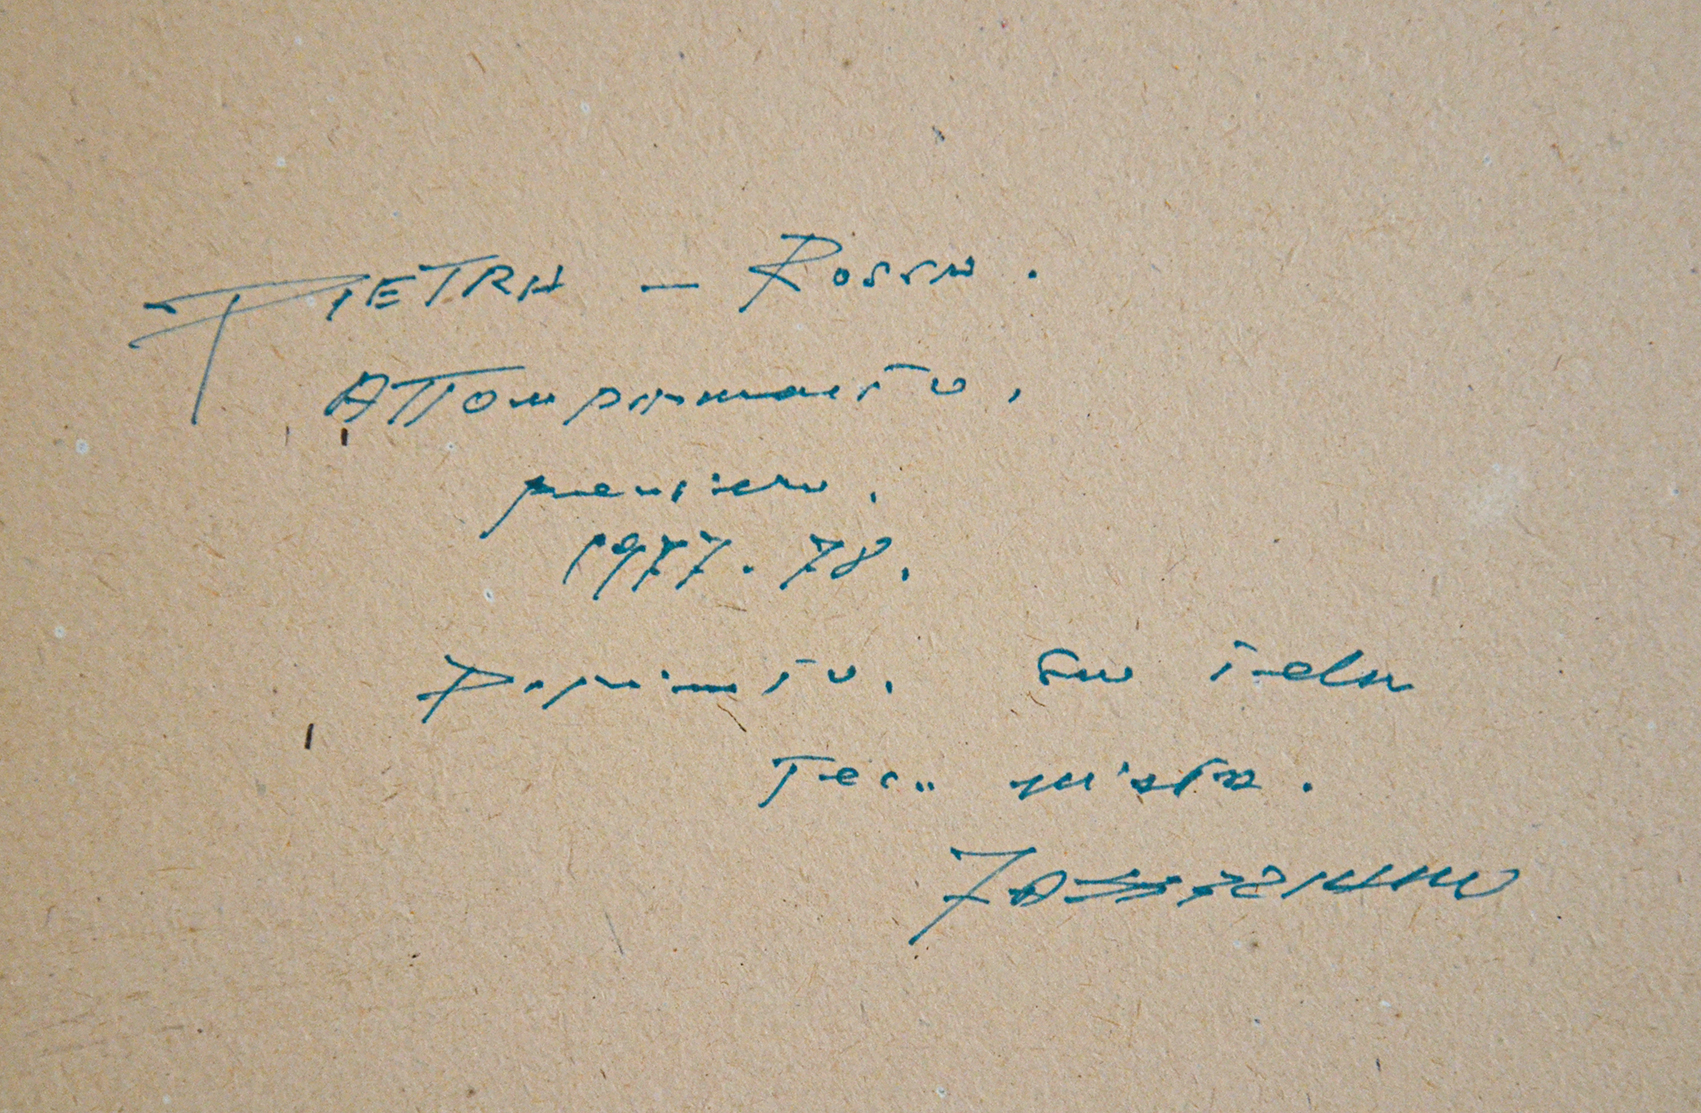 PIETRA - Rossa.
pensiero.
1977.78.
Dipinto. Su tela
Tec.. mista.